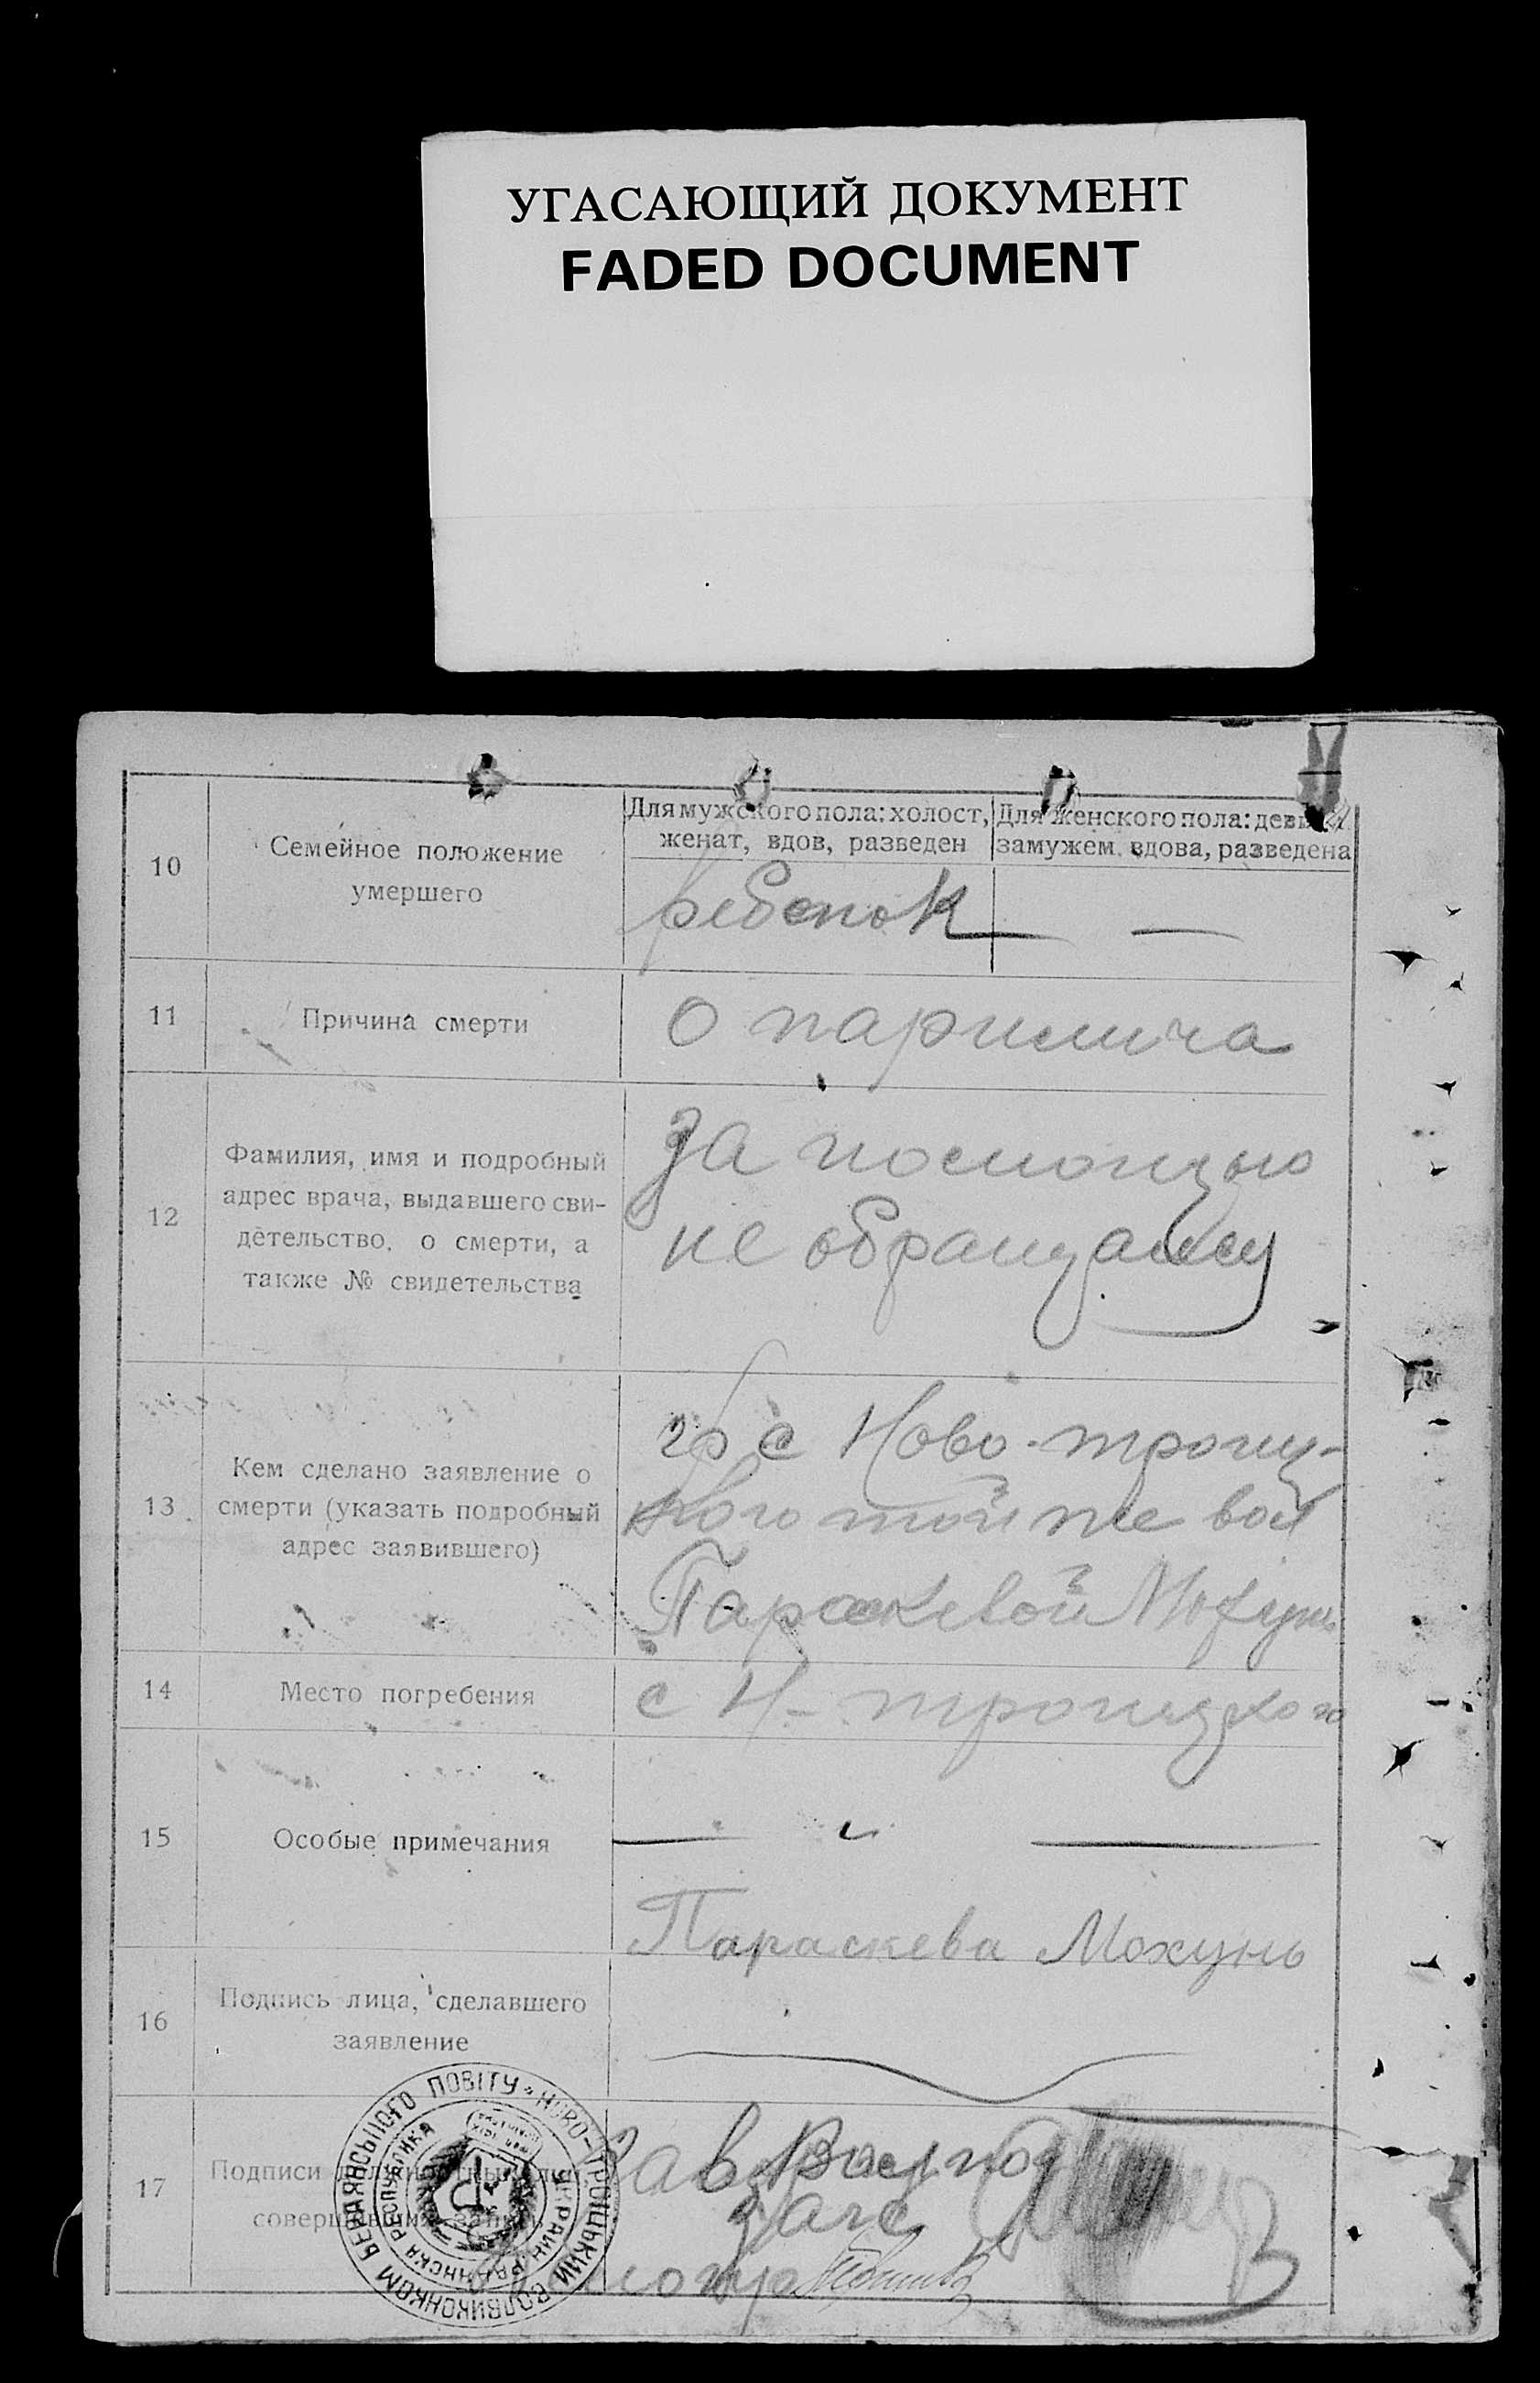 УГАСАЮЩИЙ ДОКУМЕНТ
FADED DOCUMENT
10
Семейное положение
умершего
Для мужского пола: холост,
женат, вдов, разведен
Для женского пола: девица
замужем, вдова, разведена
ребенок — —
11
Причина смерти
12
Фамилия, имя и подробный
адрес врача, выдавшего сви-
детельство, о смерти, а
также № свидетельства
За помощью
не обращались
13
Кем сделано заявление о
смерти (указать подробный
адрес заявившего)
гр с Ново-троиц-
кого той же вол
Параскевой Мохунь
14
Место погребения
с Н-троицкого
15
Особые примечания
— " —
Параскева Мохунь
16
Подпись лица, сделавшего
заявление
17
Подписи должностных лиц,
совершивших запись
Зав
загс
НОВО-ТРОЇЦЬКИЙ ВОЛВИКОНКОМ БЕРДЯНСЬКОГО ПОВІТУ
УКРАИН. РАДЯНСКА РЕСПУБЛИКА